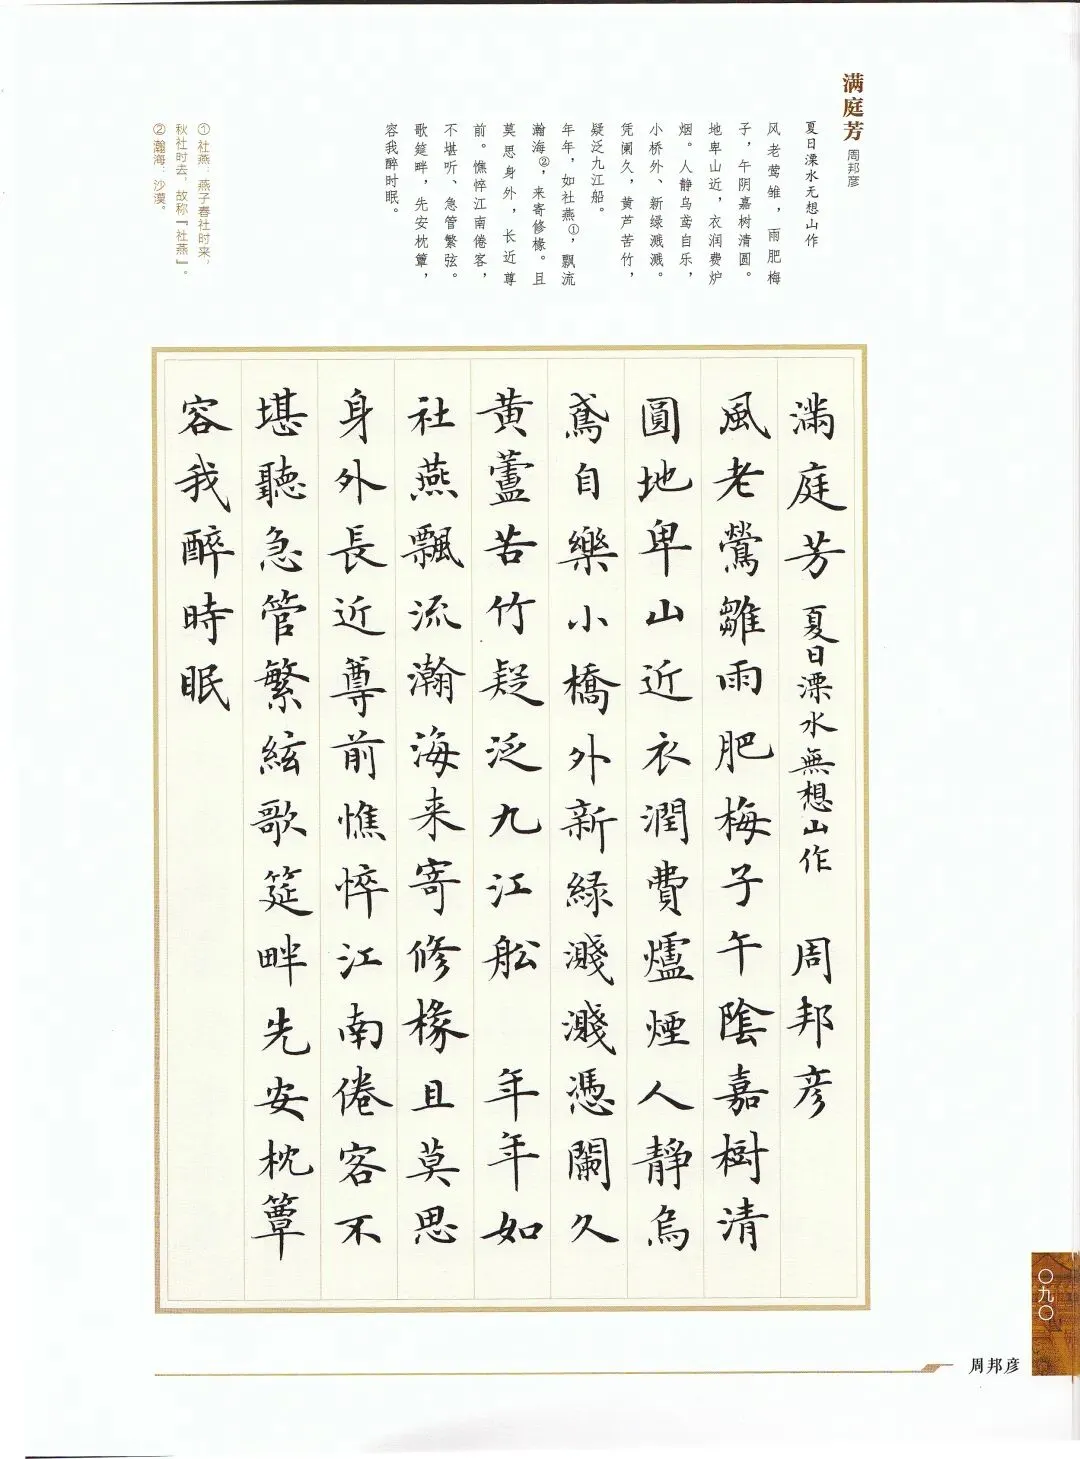 满庭芳 周邦彦
夏日溧水无想山作
风老莺雏，雨肥梅
子，午阴嘉树清圆。
地卑山近，衣润费炉
烟。人静乌鸢自乐，
小桥外、新绿溅溅。
凭阑久，黄芦苦竹，
疑泛九江船。
年年，如社燕①，飘流
瀚海②，来寄修椽。且
莫思身外，长近尊
前。憔悴江南倦客，
不堪听、急管繁弦。
歌筵畔，先安枕簟，
容我醉时眠。
① 社燕：燕子春社时来，
秋社时去，故称『社燕』。
② 瀚海：沙漠。
满庭芳 夏日溧水無想山作 周邦彦
風老鶯雛雨肥梅子午陰嘉樹清
圓地卑山近衣潤費爐煙人靜烏
鳶自樂小橋外新緑濺濺憑闌久
黄蘆苦竹疑泛九江舩 年年如
社燕飄流瀚海来寄修椽且莫思
身外長近尊前憔悴江南倦客不
堪聽急管繁絃歌筵畔先安枕簟
容我醉時眠
〇九〇
周邦彦